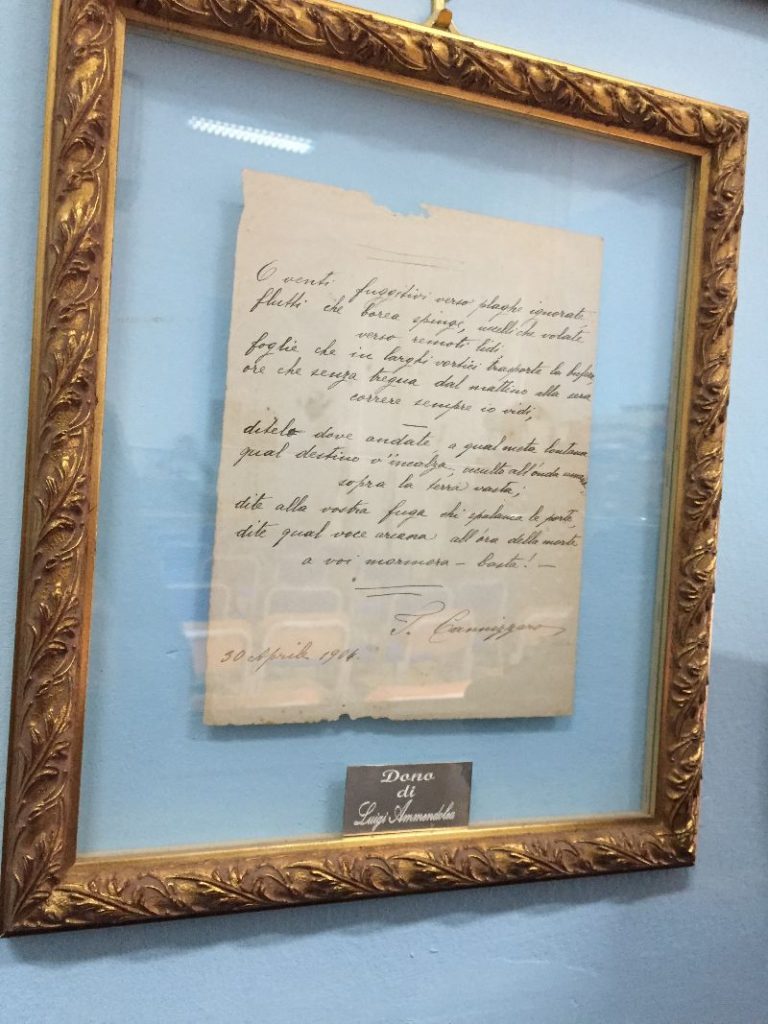 O venti fuggitivi verso plaghe ignorate
flutti che borea spinge, uccelli che volate
verso remoti lidi
foglie che in larghi vortici trasporta la bufera,
ore che senza tregua dal mattino alla sera
correre sempre io vidi,
ditelo dove andate a qual meta lontana
qual destino v'incalza, occulto all'onda umana
sopra la terra vasta;
dite alla vostra fuga chi spalanca le porte,
dite qual voce arcana all'ora della morte
a voi mormora - basta! -
T. Cannizzaro
30 Aprile 1906.
Dono
di
Luigi Ammendolea